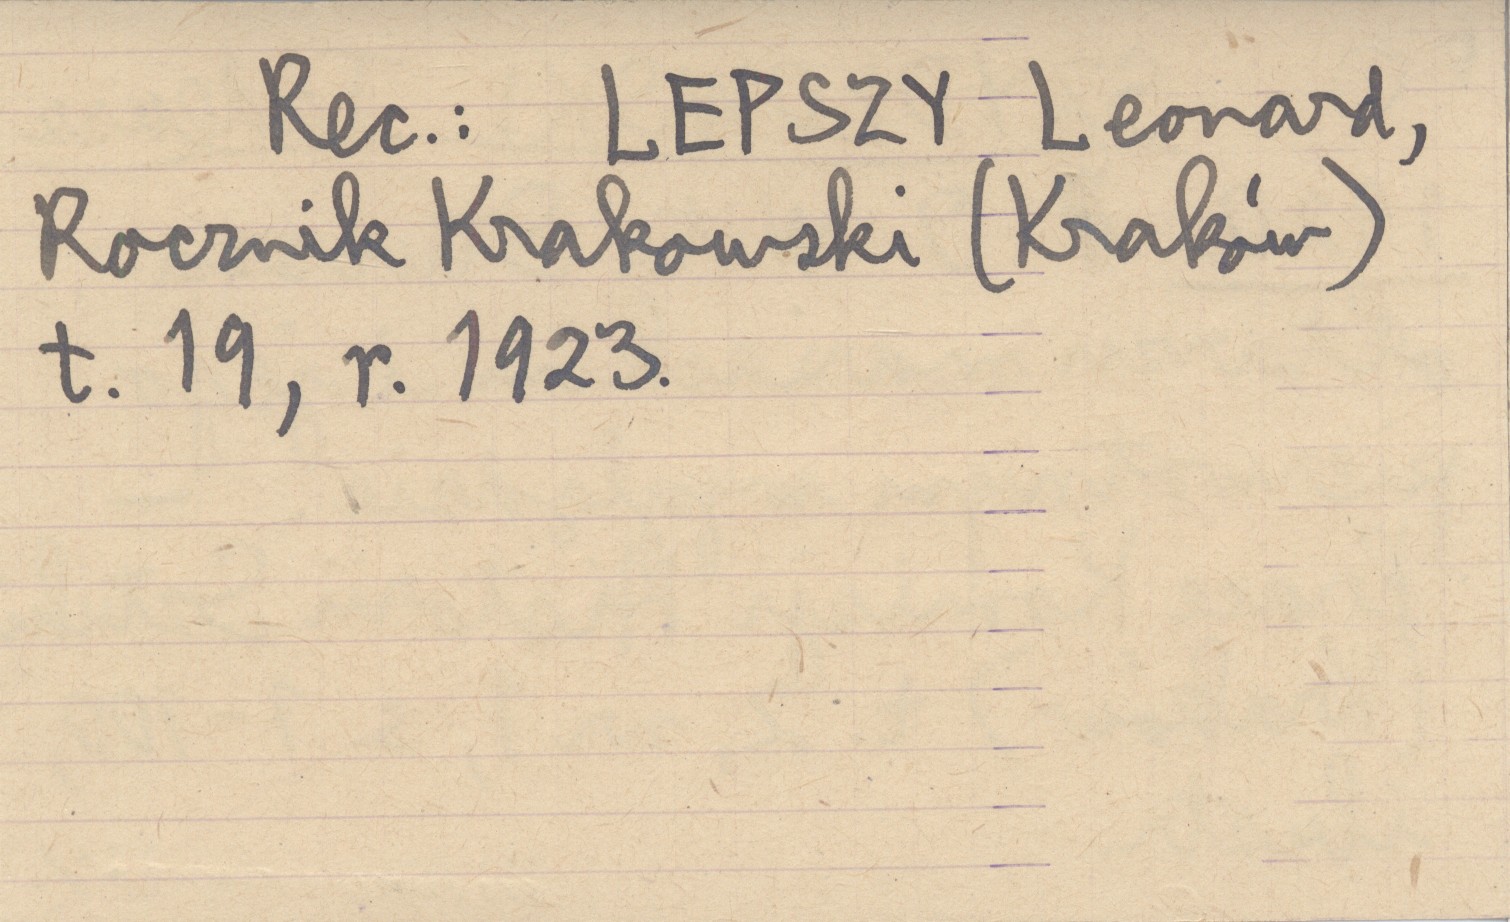 Rec.: LEPSZY Leonard,
Rocznik Krakowski (Kraków)
t. 19, r. 1923.